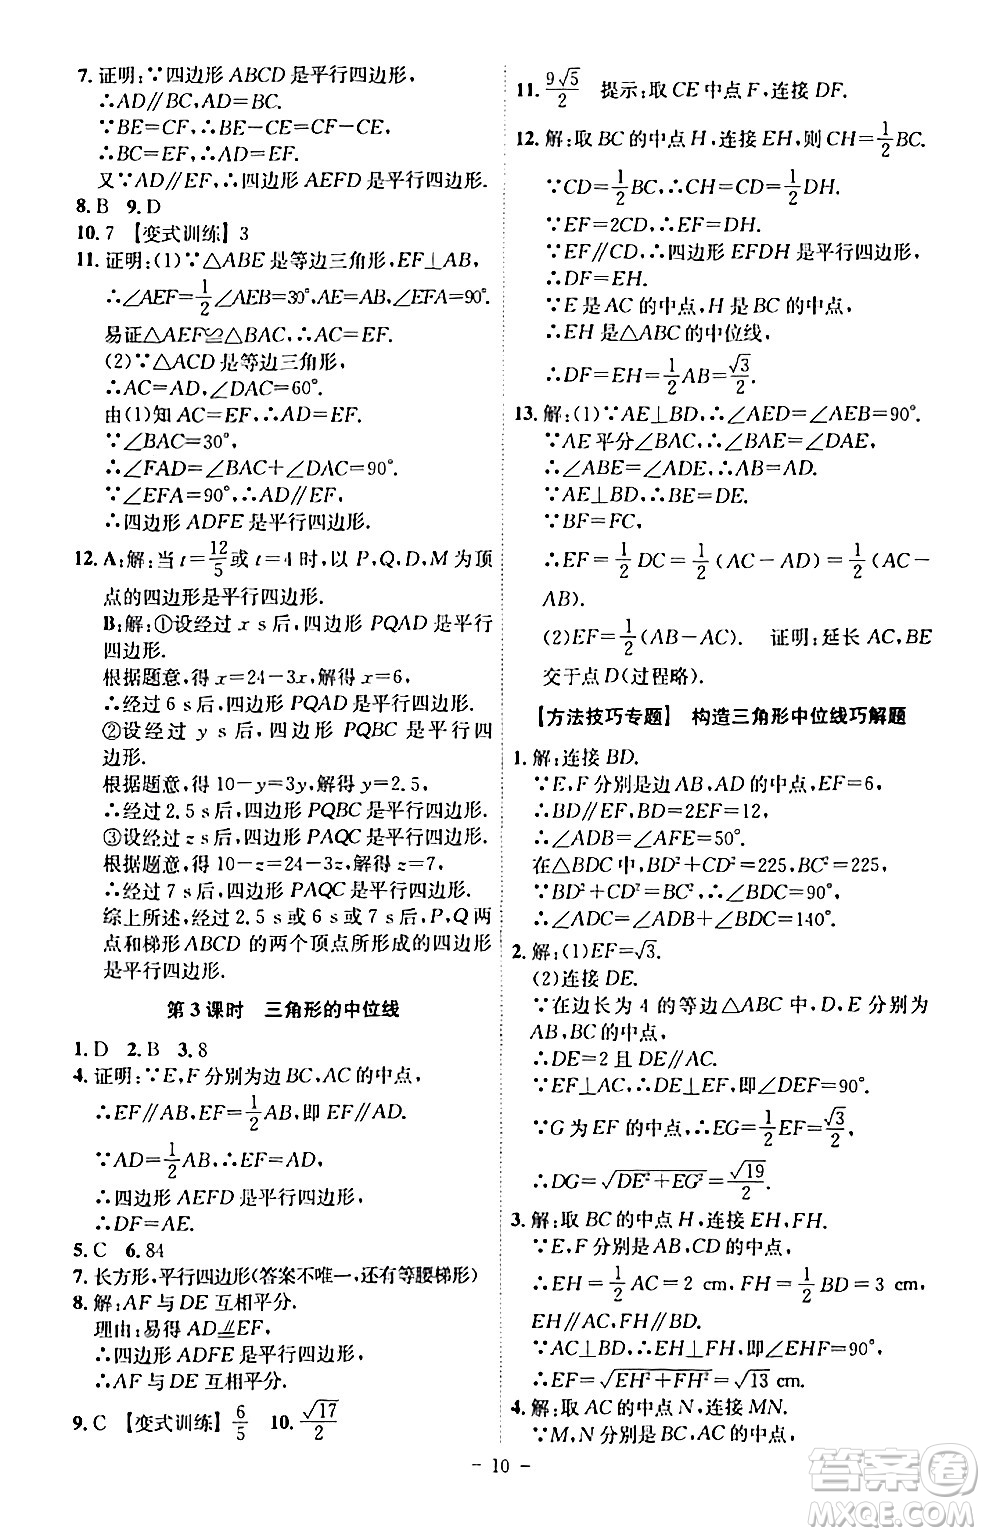 7. 证明:∵四边形 ABCD 是平行四边形,
∴AD∥BC,AD=BC.
∵BE=CF,∴BE-CE=CF-CE,
∴BC=EF,∴AD=EF.
又∵AD∥EF,∴四边形 AEFD 是平行四边形.
8. B 9. D
10. 7 【变式训练】3
11. 证明:(1)∵△ABE 是等边三角形,EF⊥AB,
∴∠AEF=1/2∠AEB=30°,AE=AB,∠EFA=90°.
易证△AEF≌△BAC,∴AC=EF.
(2)∵△ACD 是等边三角形,
∴AC=AD,∠DAC=60°.
由(1)知 AC=EF,∴AD=EF.
∵∠BAC=30°,
∴∠FAD=∠BAC+∠DAC=90°.
∵∠EFA=90°,∴AD∥EF.
∴四边形 ADFE 是平行四边形.
12. A:解:当 t=12/5 或 t=4 时,以 P,Q,D,M 为顶
点的四边形是平行四边形.
B:解:①设经过 x s 后,四边形 PQAD 是平行
四边形.
根据题意,得 x=24-3x,解得 x=6,
∴经过 6 s 后,四边形 PQAD 是平行四边形.
②设经过 y s 后,四边形 PQBC 是平行四边形.
根据题意,得 10-y=3y,解得 y=2.5,
∴经过 2.5 s 后,四边形 PQBC 是平行四边形.
③设经过 z s 后,四边形 PAQC 是平行四边形.
根据题意,得 10-z=24-3z,解得 z=7,
∴经过 7 s 后,四边形 PAQC 是平行四边形.
综上所述,经过 2.5 s 或 6 s 或 7 s 后,P,Q 两
点和梯形 ABCD 的两个顶点所形成的四边形
是平行四边形.
第 3 课时 三角形的中位线
1. D 2. B 3. 8
4. 证明:∵E,F 分别为边 BC,AC 的中点,
∴EF∥AB,EF=1/2 AB,即 EF∥AD.
∵AD=1/2 AB,∴EF=AD,
∴四边形 AEFD 是平行四边形,
∴DF=AE.
5. C 6. 84
7. 长方形,平行四边形(答案不唯一,还有等腰梯形)
8. 解:AF 与 DE 互相平分.
理由:易得 AD∥=EF,
∴四边形 ADFE 是平行四边形,
∴AF 与 DE 互相平分.
9. C 【变式训练】6/5 10. √17/2
11. 9√5/2 提示:取 CE 中点 F,连接 DF.
12. 解:取 BC 的中点 H,连接 EH,则 CH=1/2 BC.
∵CD=1/2 BC,∴CH=CD=1/2 DH.
∵EF=2CD,∴EF=DH.
∵EF∥CD,∴四边形 EFDH 是平行四边形,
∴DF=EH.
∵E 是 AC 的中点,H 是 BC 的中点,
∴EH 是△ABC 的中位线,
∴DF=EH=1/2 AB=√3/2.
13. 解:(1)∵AE⊥BD,∴∠AED=∠AEB=90°.
∵AE 平分∠BAC,∴∠BAE=∠DAE,
∴∠ABE=∠ADE,∴AB=AD.
∵AE⊥BD,∴BE=DE.
∵BF=FC,
∴EF=1/2 DC=1/2(AC-AD)=1/2(AC-
AB).
(2)EF=1/2(AB-AC). 证明:延长 AC,BE
交于点 D(过程略).
【方法技巧专题】 构造三角形中位线巧解题
1. 解:连接 BD.
∵E,F 分别是边 AB,AD 的中点,EF=6,
∴BD∥EF,BD=2EF=12,
∴∠ADB=∠AFE=50°.
在△BDC 中,BD²+CD²=225,BC²=225,
∵BD²+CD²=BC²,∴∠BDC=90°,
∴∠ADC=∠ADB+∠BDC=140°.
2. 解:(1)EF=√3.
(2)连接 DE.
∵在边长为 4 的等边△ABC 中,D,E 分别为
AB,BC 的中点,
∴DE=2 且 DE∥AC.
∵EF⊥AC,∴DE⊥EF,即∠DEF=90°.
∵G 为 EF 的中点,∴EG=1/2 EF=√3/2,
∴DG=√(DE²+EG²)=√19/2.
3. 解:取 BC 的中点 H,连接 EH,FH.
∵E,F 分别为 AB,CD 的中点,
∴EH=1/2 AC=2 cm,FH=1/2 BD=3 cm,
EH∥AC,FH∥BD.
∵AC⊥BD,∴EH⊥FH,即∠EHF=90°,
∴EF=√(EH²+FH²)=√13 cm.
4. 解:取 AC 的中点 N,连接 MN.
∵M,N 分别是 BC,AC 的中点,
- 10 -
答案圈
MXQE.COM